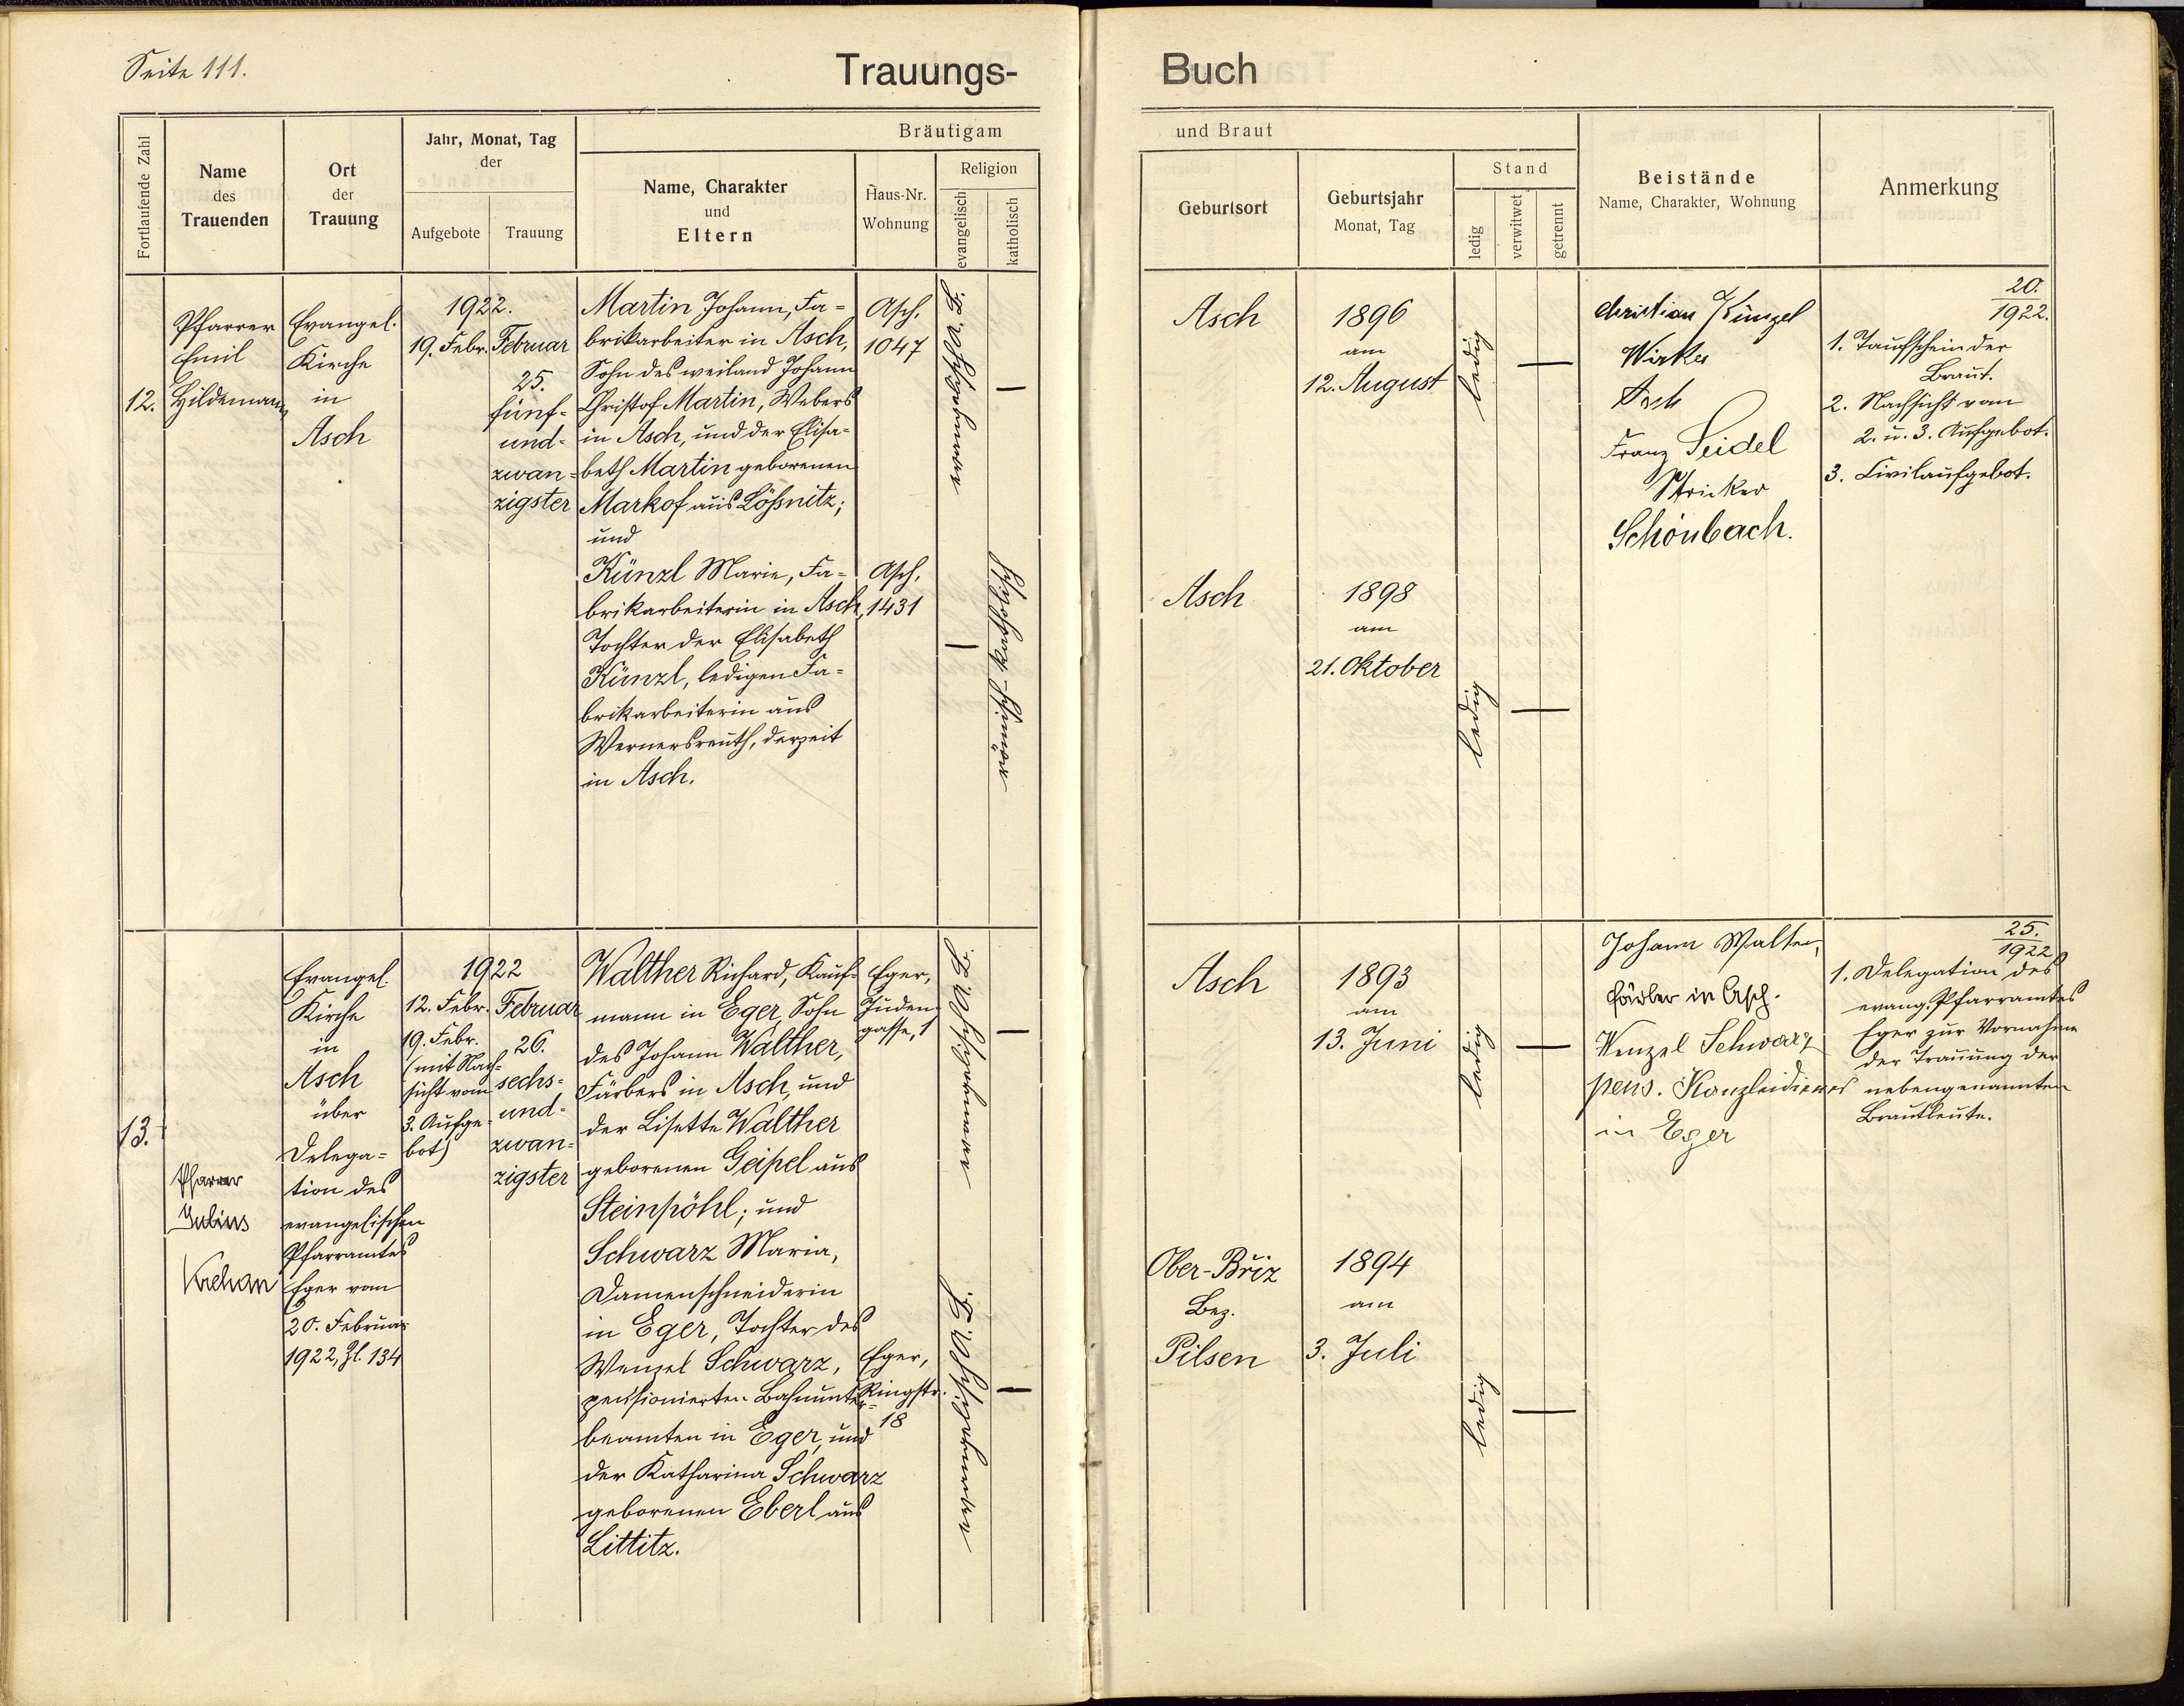 Seite 111.
Trauungs-Buch
Fortlaufende Zahl
Name
des
Trauenden
Ort
der
Trauung
Jahr, Monat, Tag
der
Aufgebote
Trauung
Bräutigam
Name, Charakter
und
Eltern
Haus-Nr.
Wohnung
Religion
evangelisch
katholisch
und Braut
Geburtsort
Geburtsjahr
Monat, Tag
Stand
ledig
verwitwet
getrennt
Beistände
Name, Charakter, Wohnung
Anmerkung
12.
Pfarrer
Emil
Hildemann
Evangel.
Kirche
in
Asch
1922.
19. Febr.
Februar
25.
fünf-
und-
zwan-
zigster
Martin Johann, Fa-
brikarbeiter in Asch,
Sohn des weiland Johann
Christof Martin, Webers
in Asch, und der Elisa-
beth Martin geborenen
Markof aus Lößnitz;
und
Künzl Marie, Fa-
brikarbeiterin in Asch,
Tochter der Elisabeth
Künzl, ledigen Fa-
brikarbeiterin aus
Wernersreuth, derzeit
in Asch.
Asch,
1047
Asch,
1431
evangelisch A.B.
—
—
römisch-katholisch
Asch
1896
am
12. August
ledig
—
Asch
1898
am
21. Oktober
ledig
—
Christian Künzel
Wirker
Asch
Franz Seidel
Stricker
Schönbach.
20.
1922.
1. Taufschein der
Braut.
2. Nachsicht vom
2. u. 3. Aufgebot.
3. Civilaufgebot.
13.
Pfarrer
Julius
Krehan
Evangel.
Kirche
in
Asch
über
Delega-
tion des
evangelischen
Pfarramtes
Eger vom
20. Februar
1922, Zl. 134
1922
12. Febr.
19. Febr.
(mit Nach-
sicht vom
3. Aufge-
bot)
Februar
26.
sechs-
und-
zwan-
zigster
Walther Richard, Kauf-
mann in Eger, Sohn
des Johann Walther,
Färbers in Asch, und
der Lisette Walther
geborenen Geipel aus
Steinpöhl; und
Schwarz Maria,
Damenschneiderin
in Eger, Tochter des
Wenzel Schwarz,
pensionierten Bahnunter-
beamten in Eger, und
der Katharina Schwarz
geborenen Eberl aus
Littitz.
Eger,
Juden-
gasse, 1
Eger,
Ringstr.
18
evangelisch A.B.
—
evangelisch A.B.
—
Asch
1893
am
13. Juni
ledig
—
Ober-Bříz
Bez.
Pilsen
1894
am
3. Juli
ledig
—
Johann Walther,
Färber in Asch.
Wenzel Schwarz
pens. Kanzleidieners
in Eger
25.
1922
1. Delegation des
evang. Pfarramtes
Eger zur Vornahme
der Trauung der
nebengenannten
Brautleute.